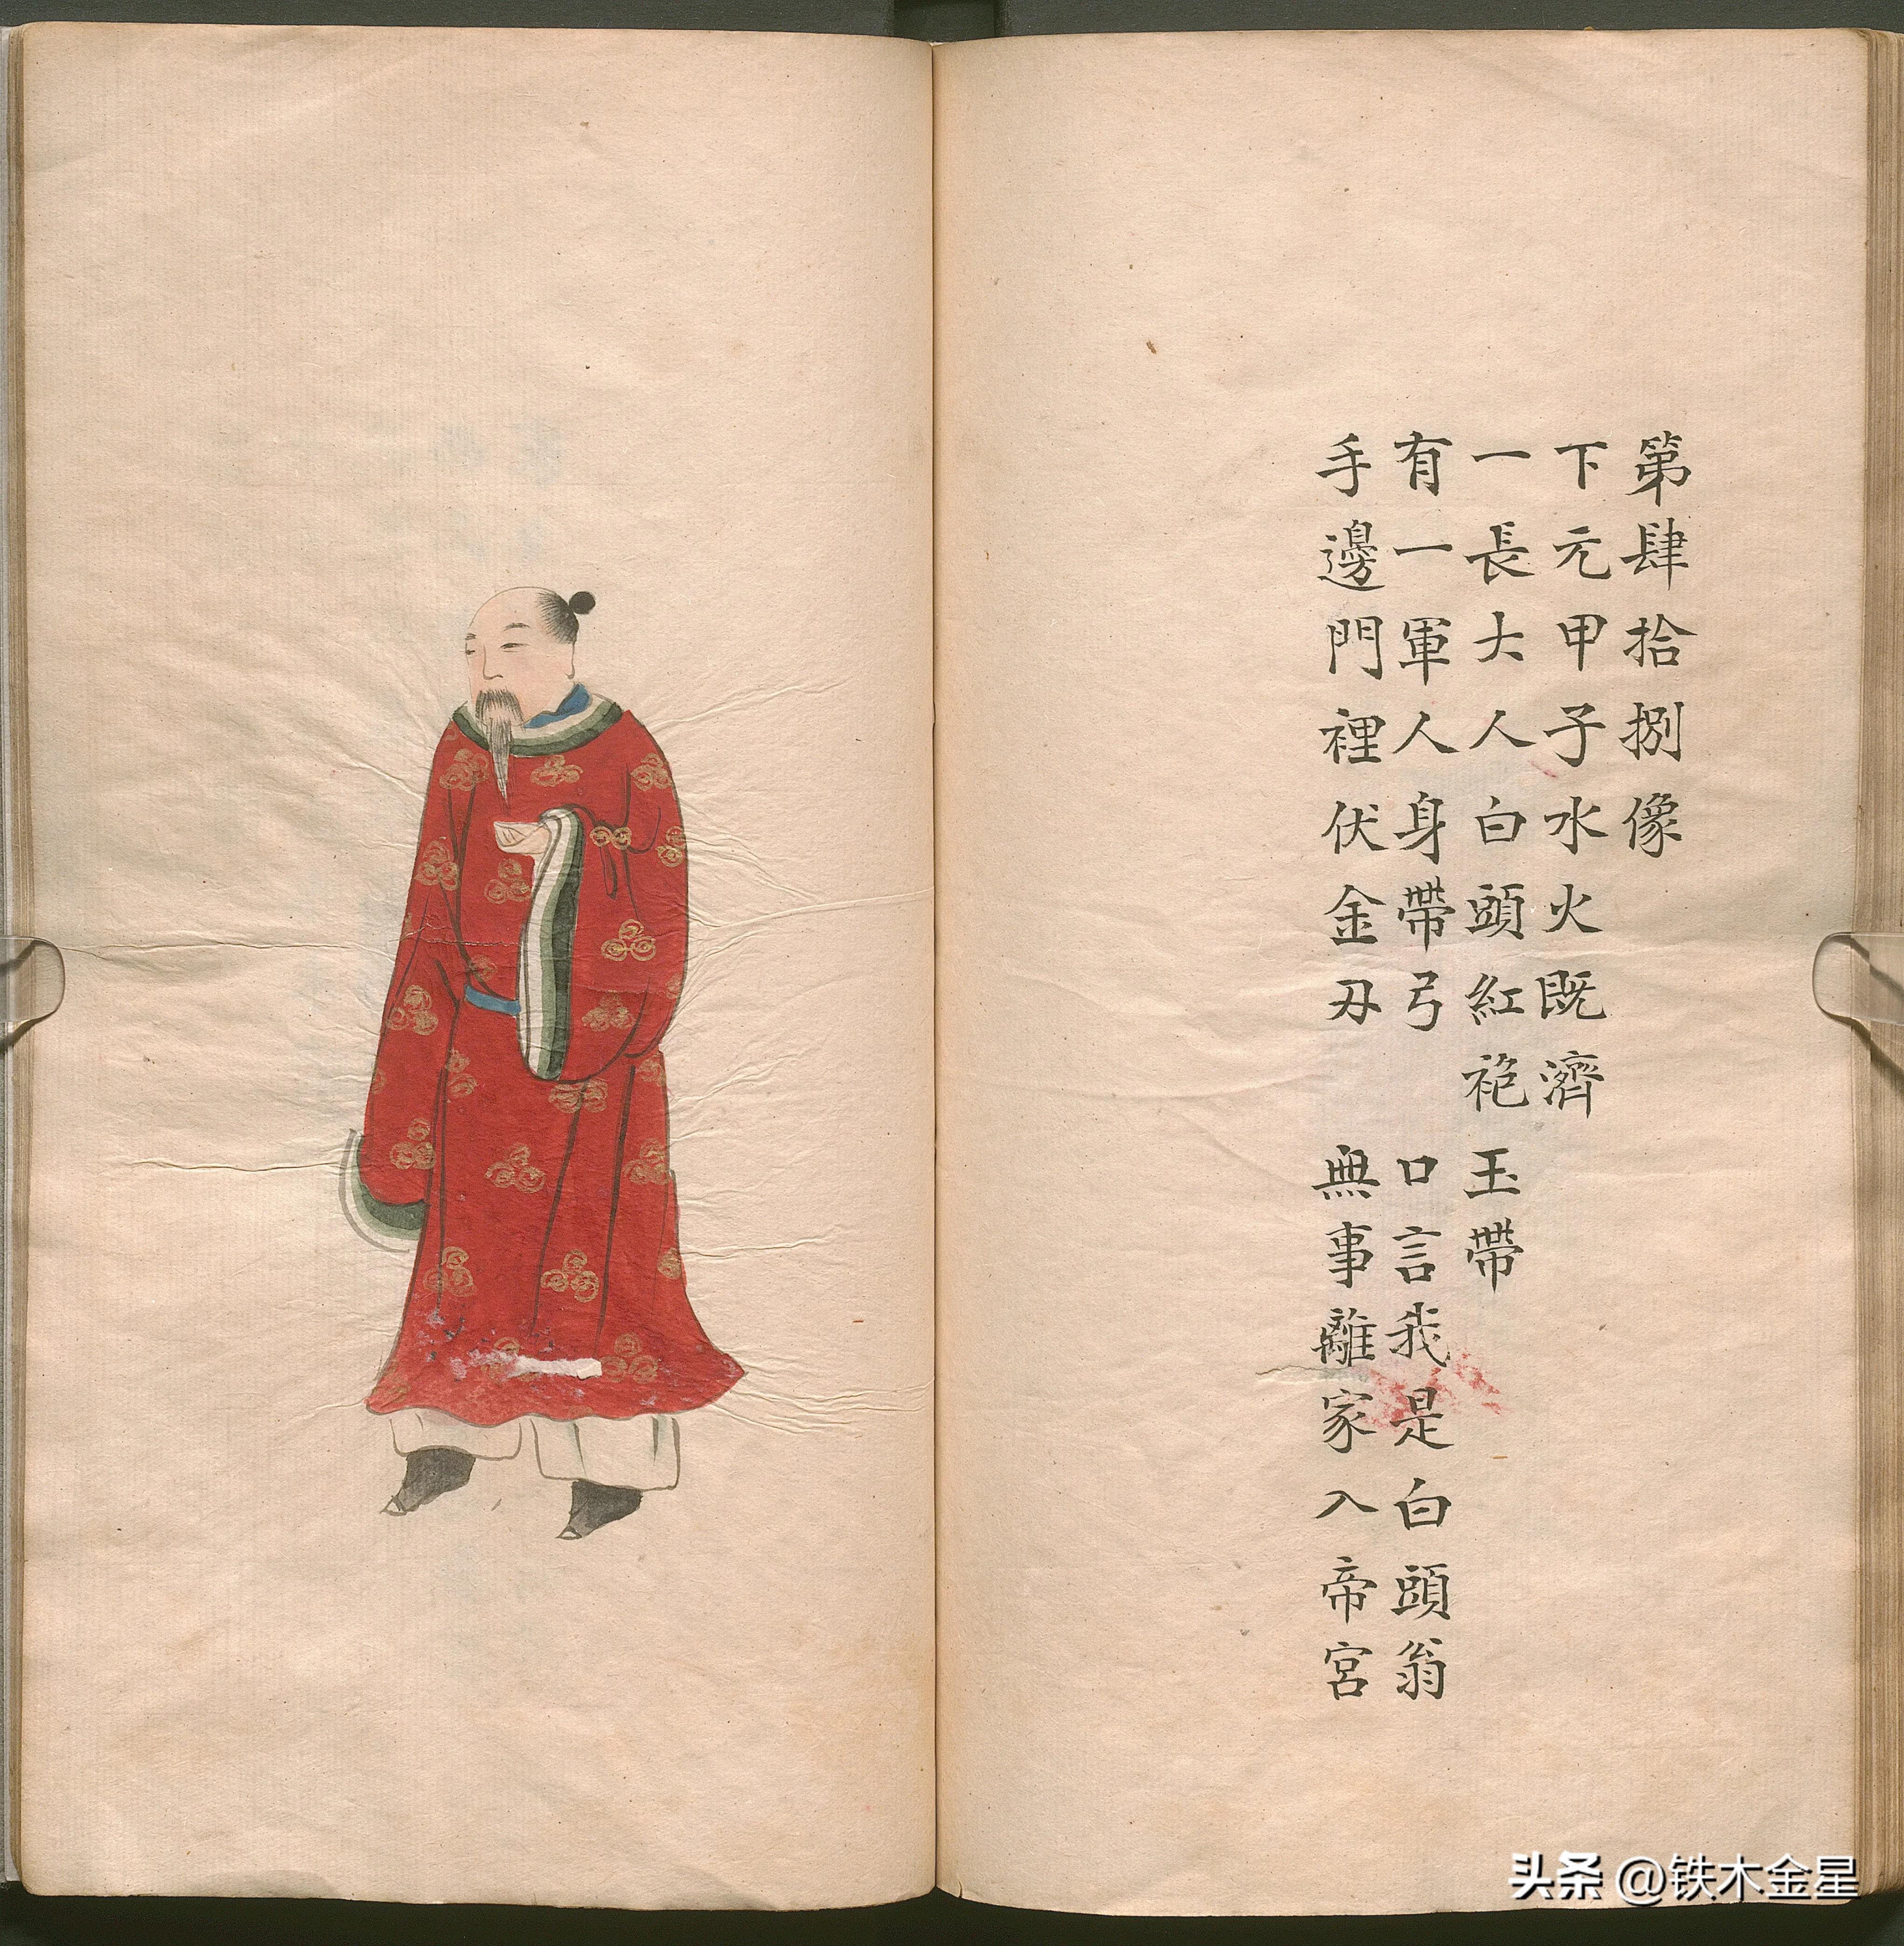 第肆拾捌像
下元甲子水火既濟
一長大人白頭紅袍 玉帶
有一軍人身帶弓 口言我是白頭翁
手邊門裡伏金刄 無事離家入帝宮
头条 @铁木金星